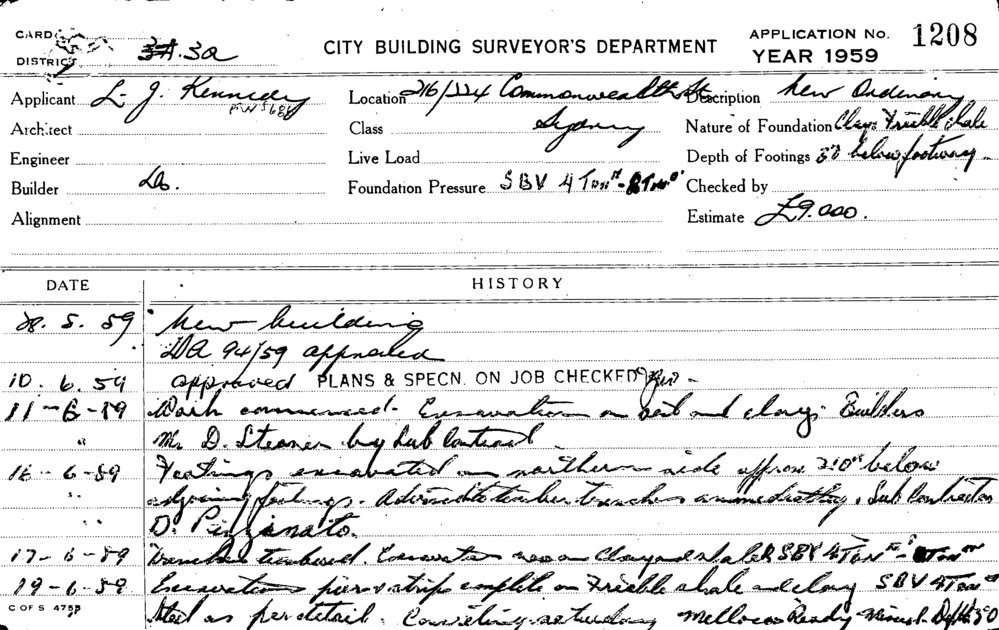 CARD
DISTRICT 3A. 3a
CITY BUILDING SURVEYOR'S DEPARTMENT
APPLICATION No. 1208
YEAR 1959
Applicant L. J. Kennedy
Location 216/224 Commonwealth St
Description New Ordinary
Architect
Class Sydney
Nature of Foundation Clay & Friable Shale
Engineer
Live Load
Depth of Footings below footway
Builder Do.
Foundation Pressure SBV 4 Ton
Checked by
Alignment
Estimate £9.000.
DATE HISTORY
28. 5. 59 New building
DA 94/59 approved
10. 6. 59 approved PLANS & SPECN. ON JOB CHECKED
11-6-59 Work commenced. Excavation in soil and clay. Builders
" Mr D. by Sub Contract
16-6-59 Footings excavated on northern side approx 2'0" below
" adjoining footings. Advised to timber trenches immediately. Sub Contractor
" D.
17-6-59 Trenches timbered. Excavation now on Clay and shale SBV 4 Ton
19-6-59 Excavations piers & strips complete on Friable shale and clay SBV 4 Ton
C OF S 4755
Steel as per detail. Concreting saturday Ready